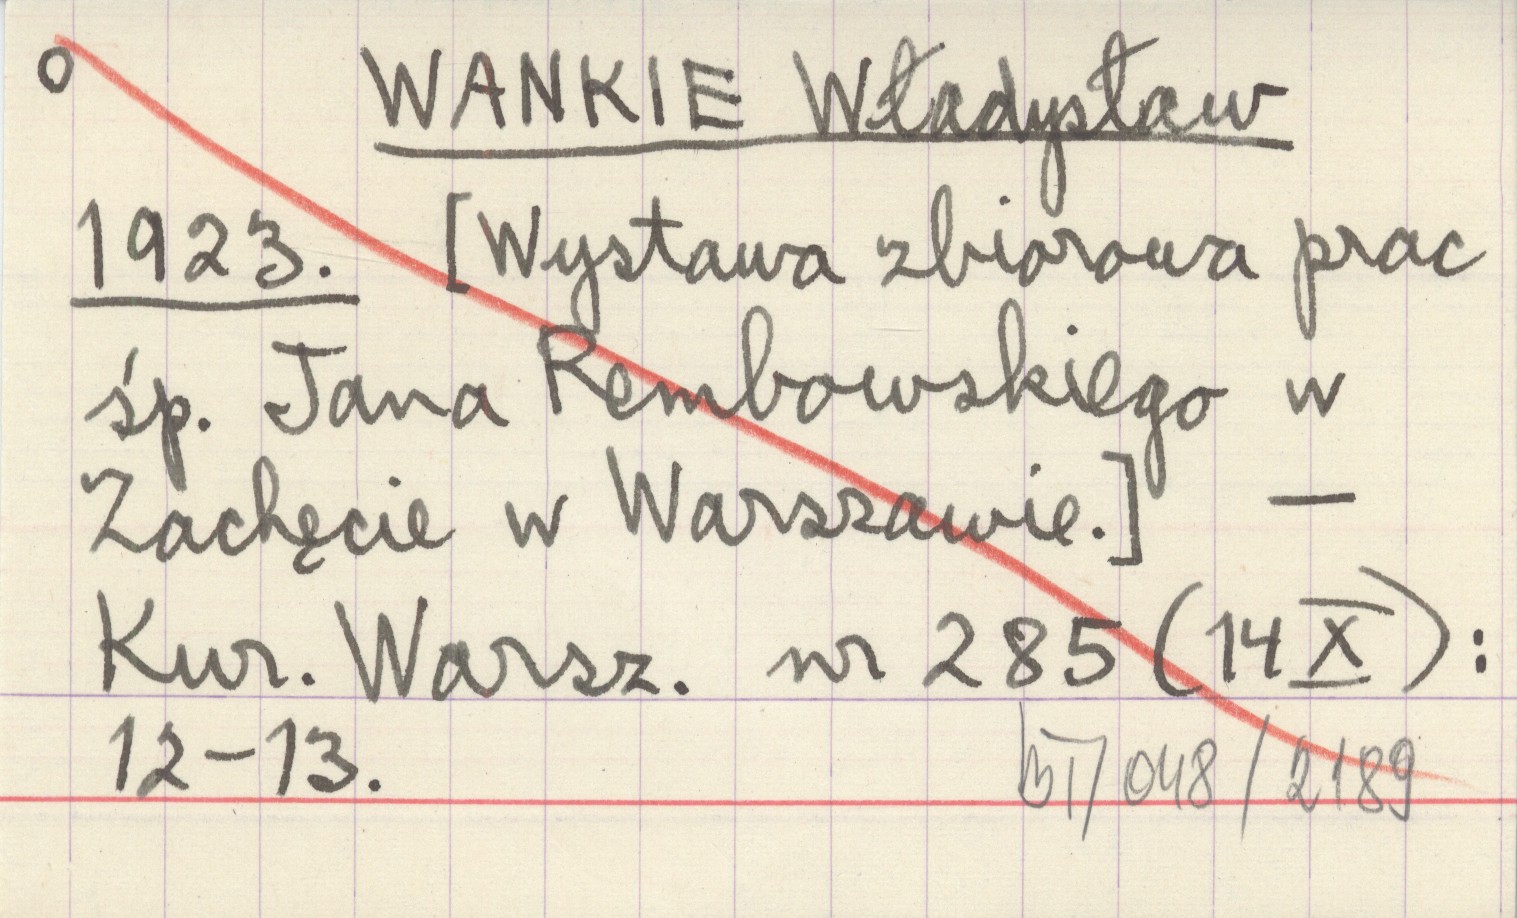 o WANKIE Władysław
1923. [Wystawa zbiorowa prac
śp. Jana Rembowskiego w
Zachęcie w Warszawie.] —
Kur. Warsz. nr 285 (14 X):
12-13.
/048/2189